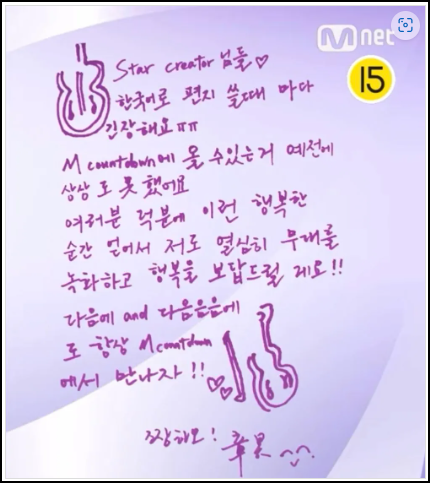 Mnet
15
Star creator님들♡
한국어로 편지 쓸때 마다
긴장해요ㅠㅠ
M countdown에 올 수있는거 예전에
상상도 못했어요
여러분 덕분에 이런 행복한
순간 얻어서 저도 열심히 무대를
녹화하고 행복을 보답드릴 게요!!
다음에 and 다음음음에
도 항상 M countdown
에서 만나자!!
짱하오! 章昊